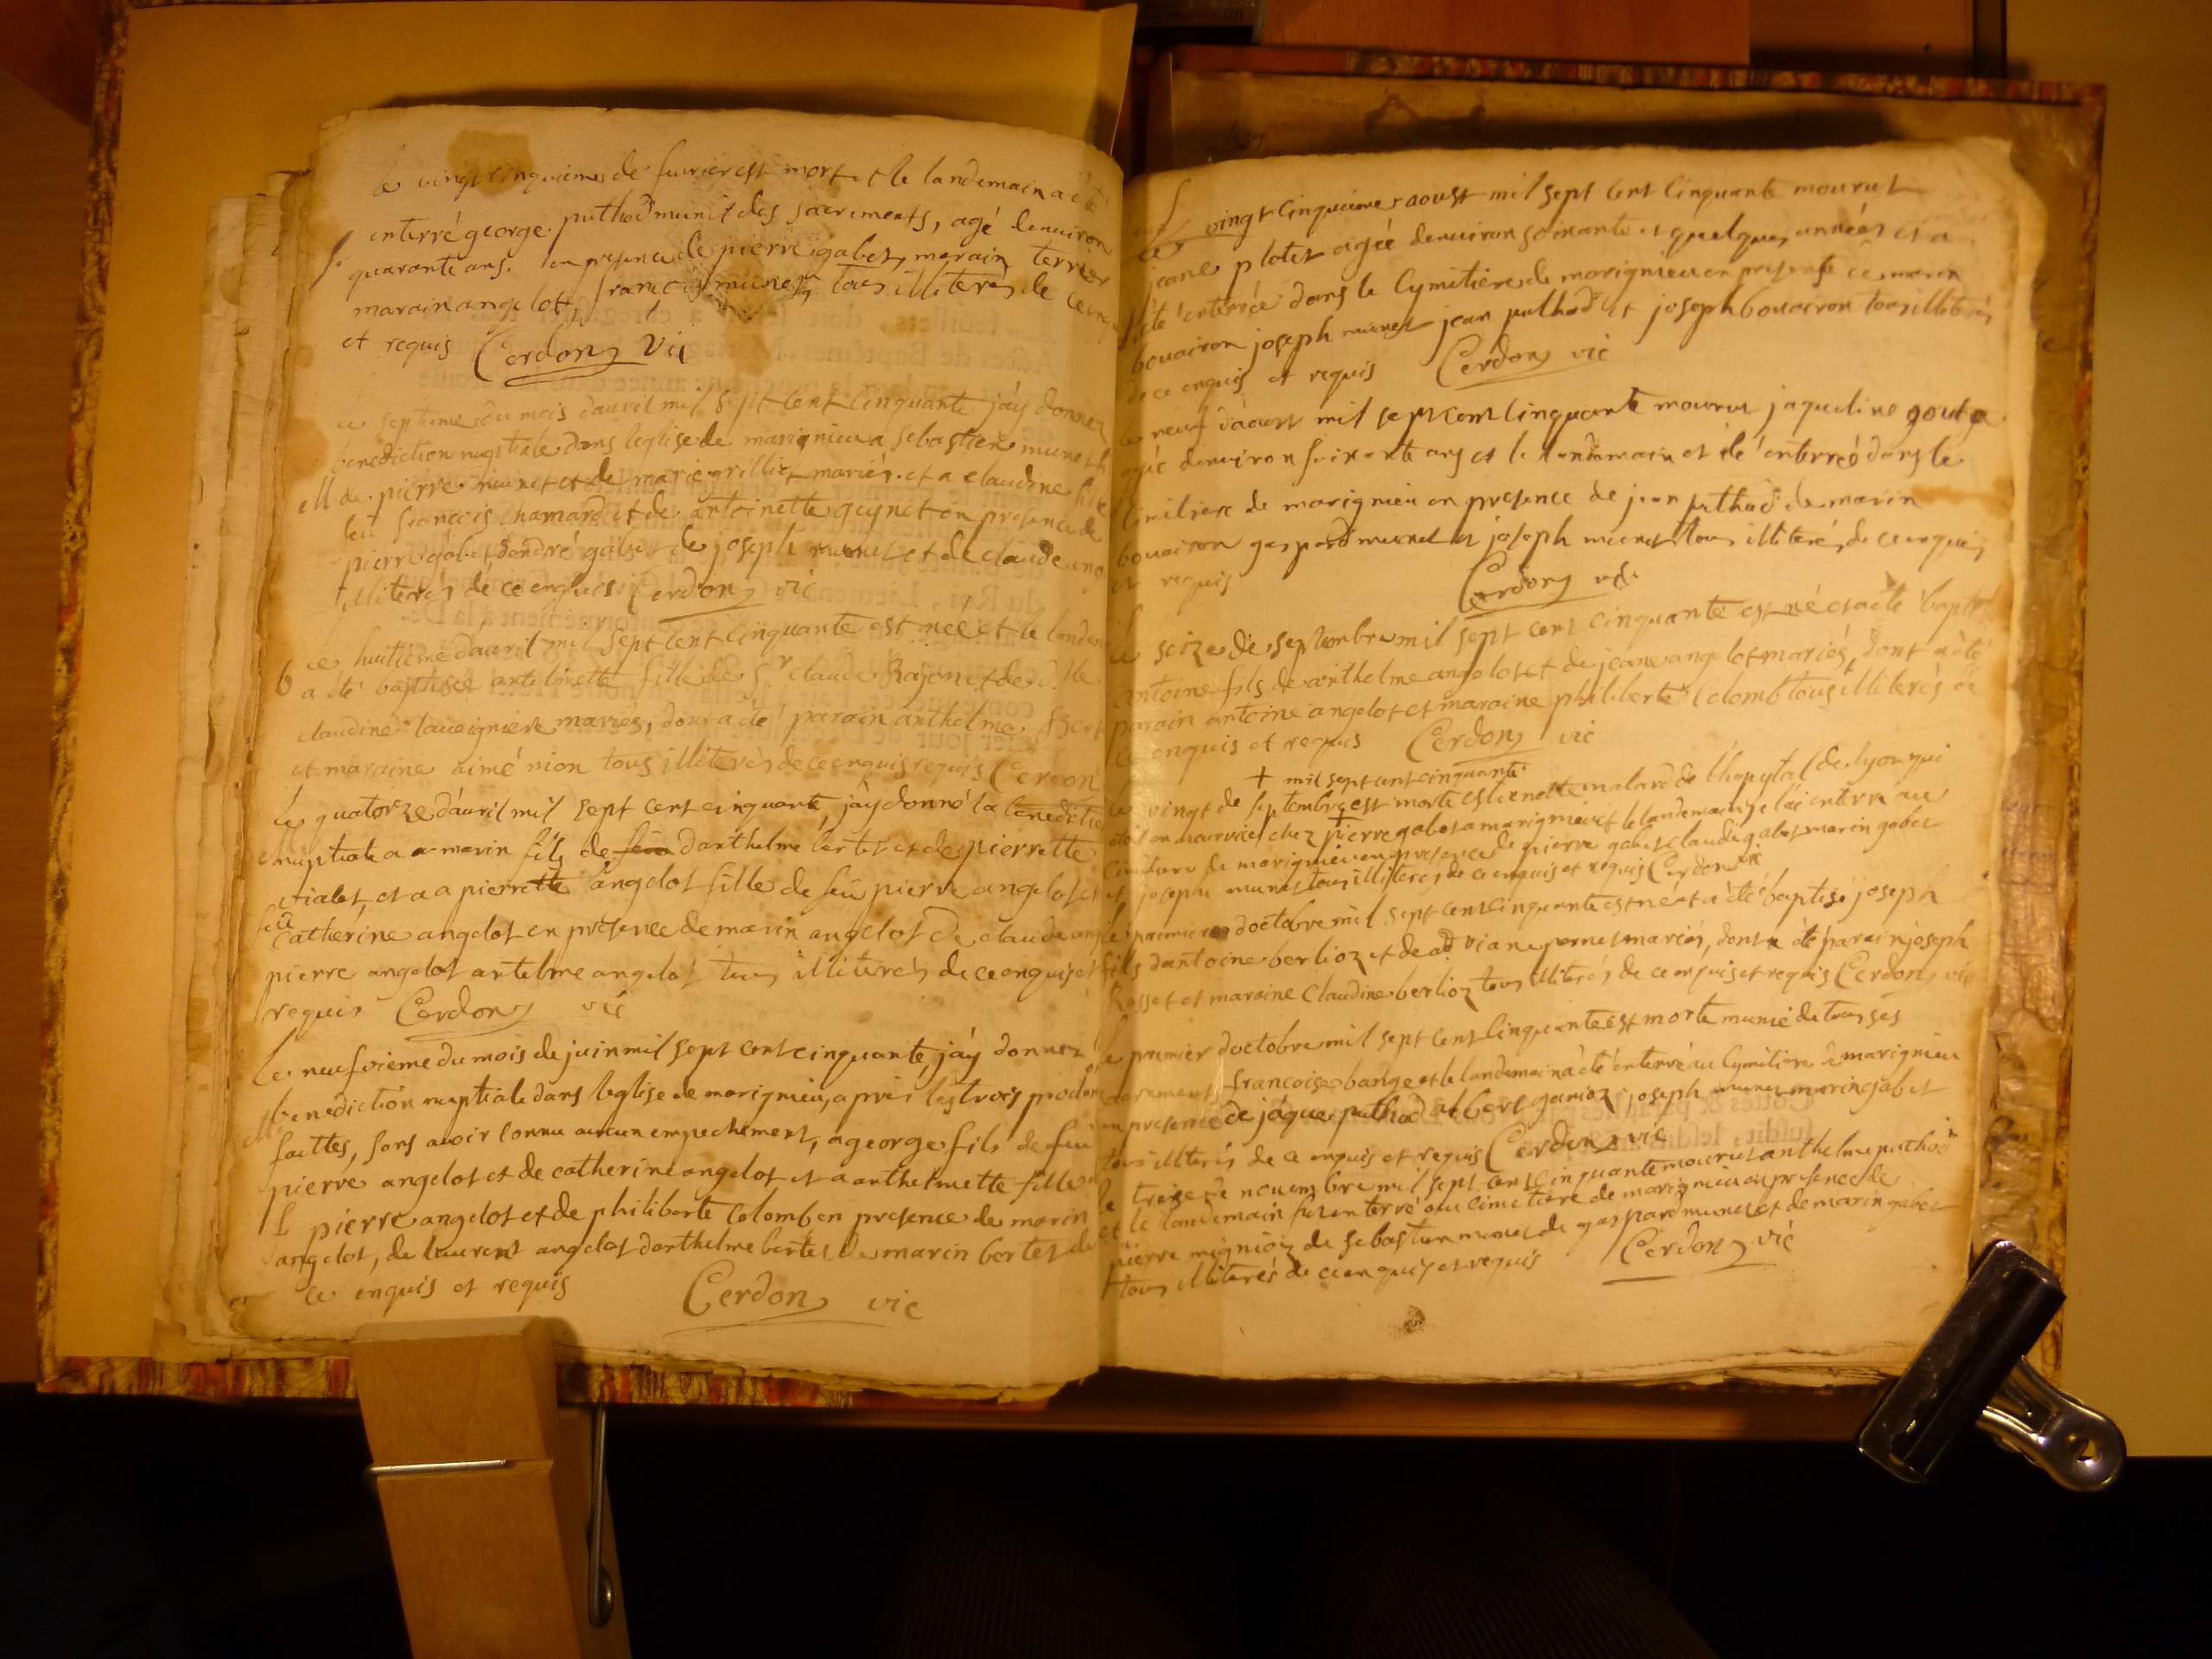 le vingt cinquieme de fuvrier est mort et le landemain a été
S. enterré george puthod munit des sacrements, agé denuiron
quarante ans. en presence de pierre gabet, marain terrier
marain angelot, francois munet tous illiterés de ce enq
et requis Cerdon vic
le septieme du mois dauril mil sept cent cinquante jáy donnez
benediction nuptiale dans leglise de marignieu a sebastien munet f
M de pierre munet et de marie grilliet mariés. et a claudine fille
feu francois chamard et de antoinette guynet en presence de
pierre gabet, dandré gabet de joseph munet et de claude
illiterés de ce enquis Cerdon vic
b le huitieme dauril mil sept cent cinquante est neé et le landem
a été baptisée antelmette fille de Sr claude Rajon et de d.lle
claudine laueigniere mariés, dont a été parain anthelme
et maraine aimé nion tous illiterés de ce enquis requis Cerdon
le quatorze dáuril mil sept cent cinquante, jáy donné la benedictio
nuptiale a a marin fils de feu danthelme bertet et de pierrette
vialet, et a a pierrette angelot fille de feu pierre angelot et
feue catherine angelot en présence de marin angelot de claude ang
pierre angelot antelme angelot tous illiterés de ce enquis et
requis Cerdon vic
le neufvieme du mois de juin mil sept cent cinquante, jáy donnez
M benediction nuptiale dans leglise de marignieu, aprés les trois proclam
faittes, sans auoir connu aucun empechement, a george fils de feu
pierre angelot et de catherine angelot et a anthelmette fille
pierre angelot et de philiberte colomb en presence de marin
angelot, de laurent angelot danthelme bertet de marin bertet de
ce enquis et requis Cerdon vic
le vingt cinquieme aoust mil sept cent cinquante mourut
jeane plotet agée denuiron soixante et quelques années et a
été enterrée dans le cymitiere de marignieu en presente ce marin
bouairon joseph munet jean puthod et joseph bouairon tous illiterés
de ce enquis et requis Cerdon vic
le neuf dáoust mil sept cent cinquante mourut jaqueline
agée denuiron soixante ans et le landemain et été enterreé dans le
cimitiere de marignieu en presence de jean puthod de marin
bouairon gaspard munet et joseph munet tous illiterés de ce enquis
et requis Cerdon vic
le seize de septembre mil sept cent cinquante est né et a été baptisé
antoine fils de anthelme angelot et de jeane angelot mariés, dont a été
parain antoine angelot et maraine philiberte colomb tous illiterés de
ce enquis et requis Cerdon vic
+ mil sept cent cinquante
le vingt de septembre est morte estienette malard de lhopytal de lyon qui
étoit en nourrice chez pierre gabet a marignieu et le landemain je láí enterré au
cimitiere de marignieu en presence de pierre gabet claude gabet marin gabet
et joseph munet tous illiterés de ce enquis et requis Cerdon vic
le premier doctobre mil sept cent cinquante est né et a été baptisé joseph
fils dantoine berlioz et de viane pernet mariés, dont a été parain joseph
Rosset et maraine claudine berlioz tous illiterés de ce enquis et requis Cerdon vic
le premier doctobre mil sept cent cinquante est morte munie de tous ses
sacrements francoise barge et le landemain a été enterré au cymitiere de marignieu
en presence de jáque puthod albert garioz joseph munet marin gabet
tous illiterés de ce enquis et requis Cerdon vic
le treize de nouembre mil sept cent cinquante mourut anthelme puthod
et le landemain fut enterré au cimetiere de marignieu en presence de
pierre mignioz de sebastien munet de gaspard munet et de marin gabet
tous illiterés de ce enquis et requis Cerdon vic